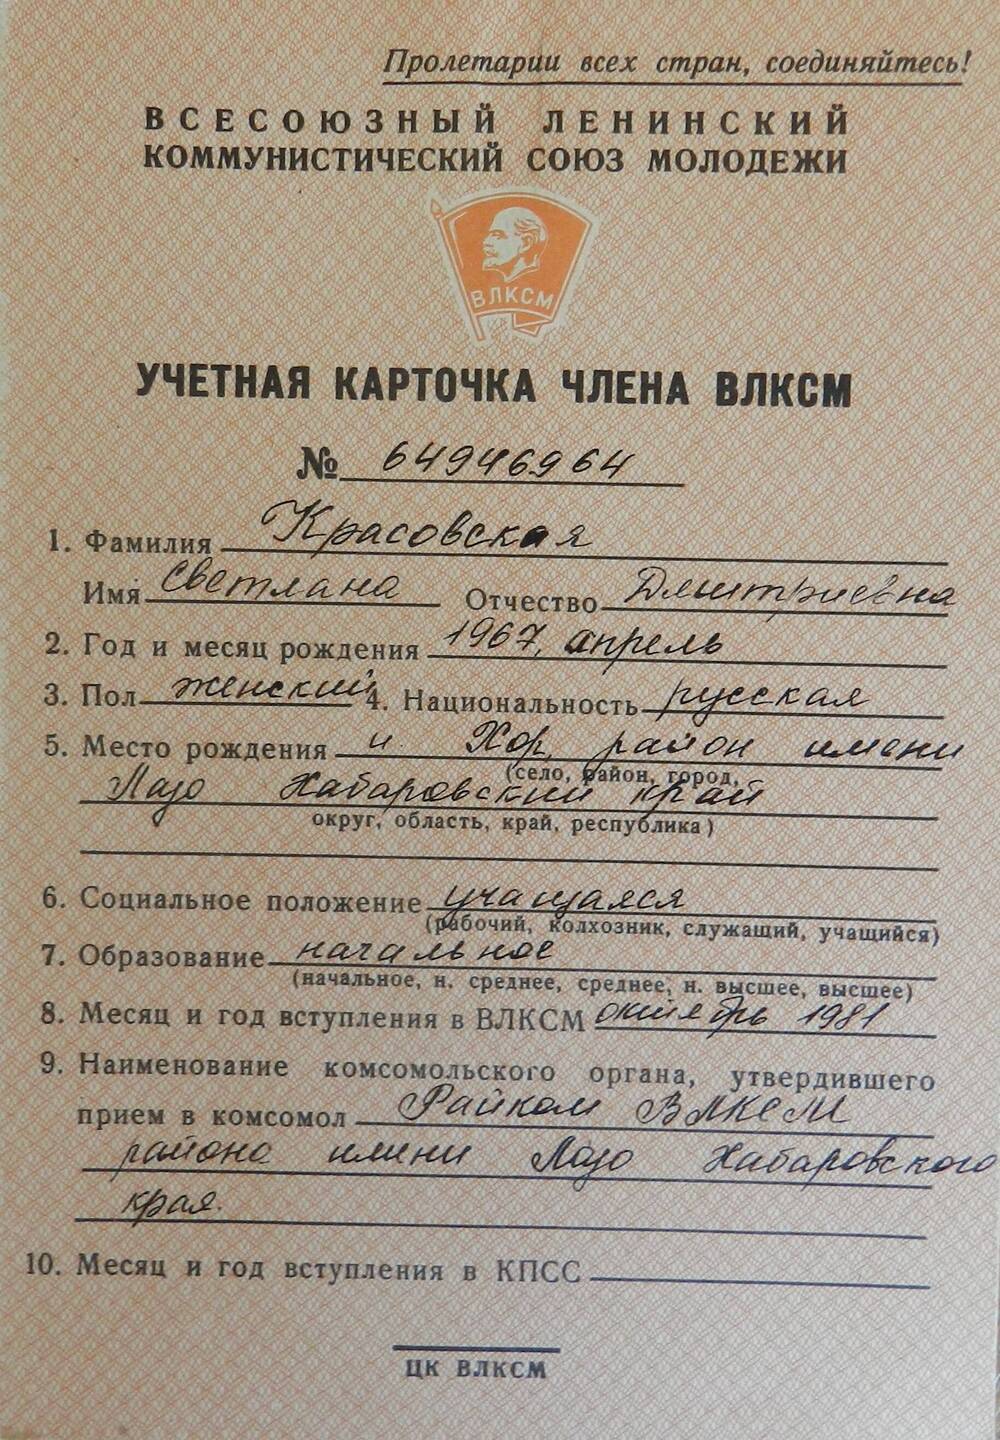 Пролетарии всех стран, соединяйтесь!
ВСЕСОЮЗНЫЙ ЛЕНИНСКИЙ
КОММУНИСТИЧЕСКИЙ СОЮЗ МОЛОДЕЖИ
ВЛКСМ
УЧЕТНАЯ КАРТОЧКА ЧЛЕНА ВЛКСМ
№ 64946964
1. Фамилия Красовская
Имя Светлана Отчество Дмитриевна
2. Год и месяц рождения 1967, апрель
3. Пол женский 4. Национальность русская
5. Место рождения п. Хор, район имени
(село, район, город,
Лазо Хабаровский край
округ, область, край, республика)
6. Социальное положение учащаяся
(рабочий, колхозник, служащий, учащийся)
7. Образование начальное
(начальное, н. среднее, среднее, н. высшее, высшее)
8. Месяц и год вступления в ВЛКСМ октябрь 1981
9. Наименование комсомольского органа, утвердившего
прием в комсомол Райком ВЛКСМ
района имени Лазо Хабаровского
края.
10. Месяц и год вступления в КПСС
ЦК ВЛКСМ